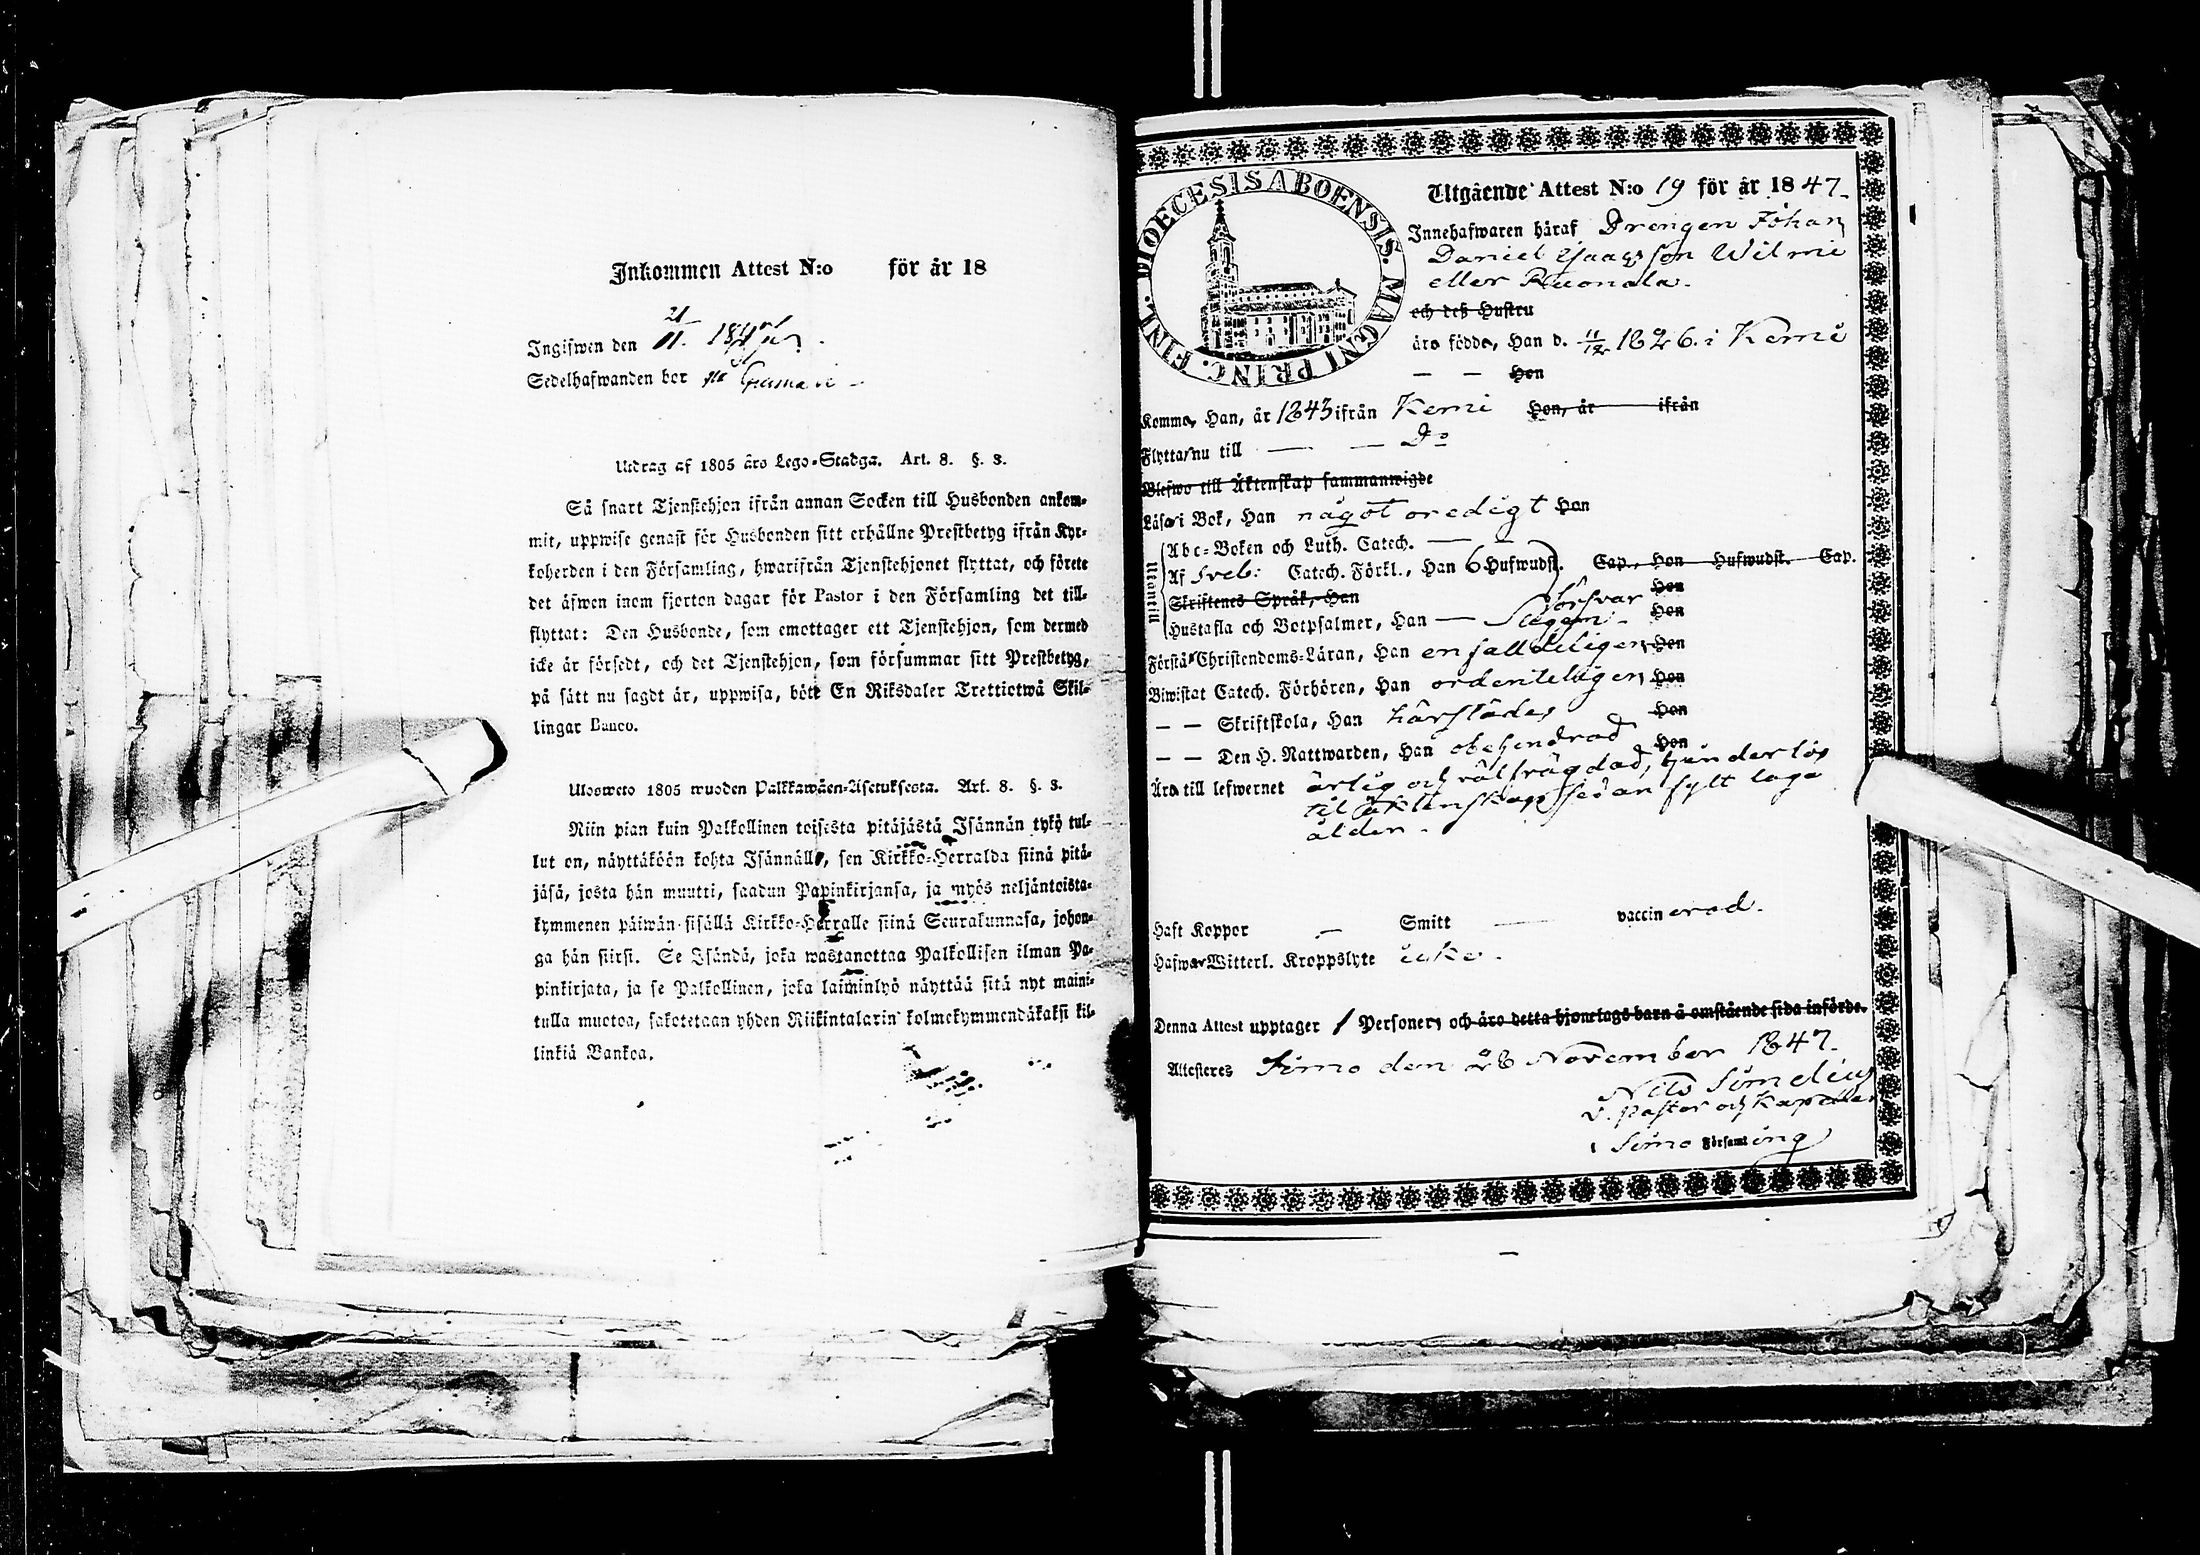 Inkommen Attest N:o för år 18
Ingifwen den 21/11. 184
Sedelhafwanden bor
Utdrag af 1805 års Lego-Stadga. Art. 8. §. 3.
Så snart Tjenstehjon ifrån annan Socken till Husbonden ankom-
mit, uppwise genast för Husbonden sitt erhållne Prestbetyg ifrån Kyr-
koherden i den Församling, hwarifrån Tjenstehjonet flyttat, och förete
det äfwen inom fjorton dagar för Pastor i den Församling det till-
flyttat: Den Husbonde, som emottager ett Tjenstehjon, som dermed
icke är försedt, och det Tjenstehjon, som försummar sitt Prestbetyg,
på sätt nu sagdt är, uppwisa, böte En Riksdaler Trettiotwå Skil-
lingar Banco.
Ulosweto 1805 wuoden Palkkawäen-Asetuksesta. Art. 8. §. 3.
Niin pian kuin Palkollinen toisesta pitäjästä Isännän tykö tul-
lut on, näyttäköön kohta Isännälle, sen Kirkko-Herralda siinä pitä-
jäsä, josta hän muutti, saadun Papinkirjansa, ja myös neljäntoista-
kymmenen päiwän sisällä Kirkko-Herralle siinä Seurakunnasa, johon-
ga hän siirsi. Se Isändä, joka wastanottaa Palkollisen ilman Pa-
pinkirjata, ja se Palkollinen, joka laiminlyö näyttää sitä nyt maini-
tulla muotoa, sakotetaan yhden Riikintalarin kolmekymmendäkaksi kil-
linkiä Bankoa.
DIOECESIS ABOENSIS. MAGNI PRINC. FINL.
Utgående Attest N:o 19 för år 1847.
Innehafwaren häraf Drengen Johan
Daniel son Wilmi
eller Ruonala.
och deß Hustru
äro födde, Han d. 11/12 1826. i Kemi
— — Hon
Komme, Han, år 1843 ifrån Kemi Hon, år ifrån
Flytta nu till — — Do
Blefwo till Äktenskap sammanwigde
Läsa i Bok, Han något oredigt Hon
Utantill
Abc-Boken och Luth. Catech. — —
Af Sveb: Catech. Förkl., Han 6 Hufwudst. Cap., Hon Hufwudst. Cap.
Skriftenes Språk, Han Hon
Hustafla och Botpsalmer, Han — försvar Hon
Förstå Christendoms-Läran, Han enfalldeligen, Hon
Biwistat Catech. Förhören, Han ordenteligen, Hon
— — Skriftskola, Han härstädes Hon
— — Den H. Nattwarden, Han obehindrad Hon
Äro till lefwernet ärlig och välfrägdad, hinderlös
til äktenskap sedan fylt laga
ålder.
Haft Koppor — Smitt — vaccinerad.
Hafwa Witterl. Kroppslyte icke.
Denna Attest upptager 1 Personer, och äro detta hjonelags barn å omstående sida införde.
Attesteres Simo den 28 November 1847.
Nils Simelius
v. pastor och Kapellan
i Simo Församling